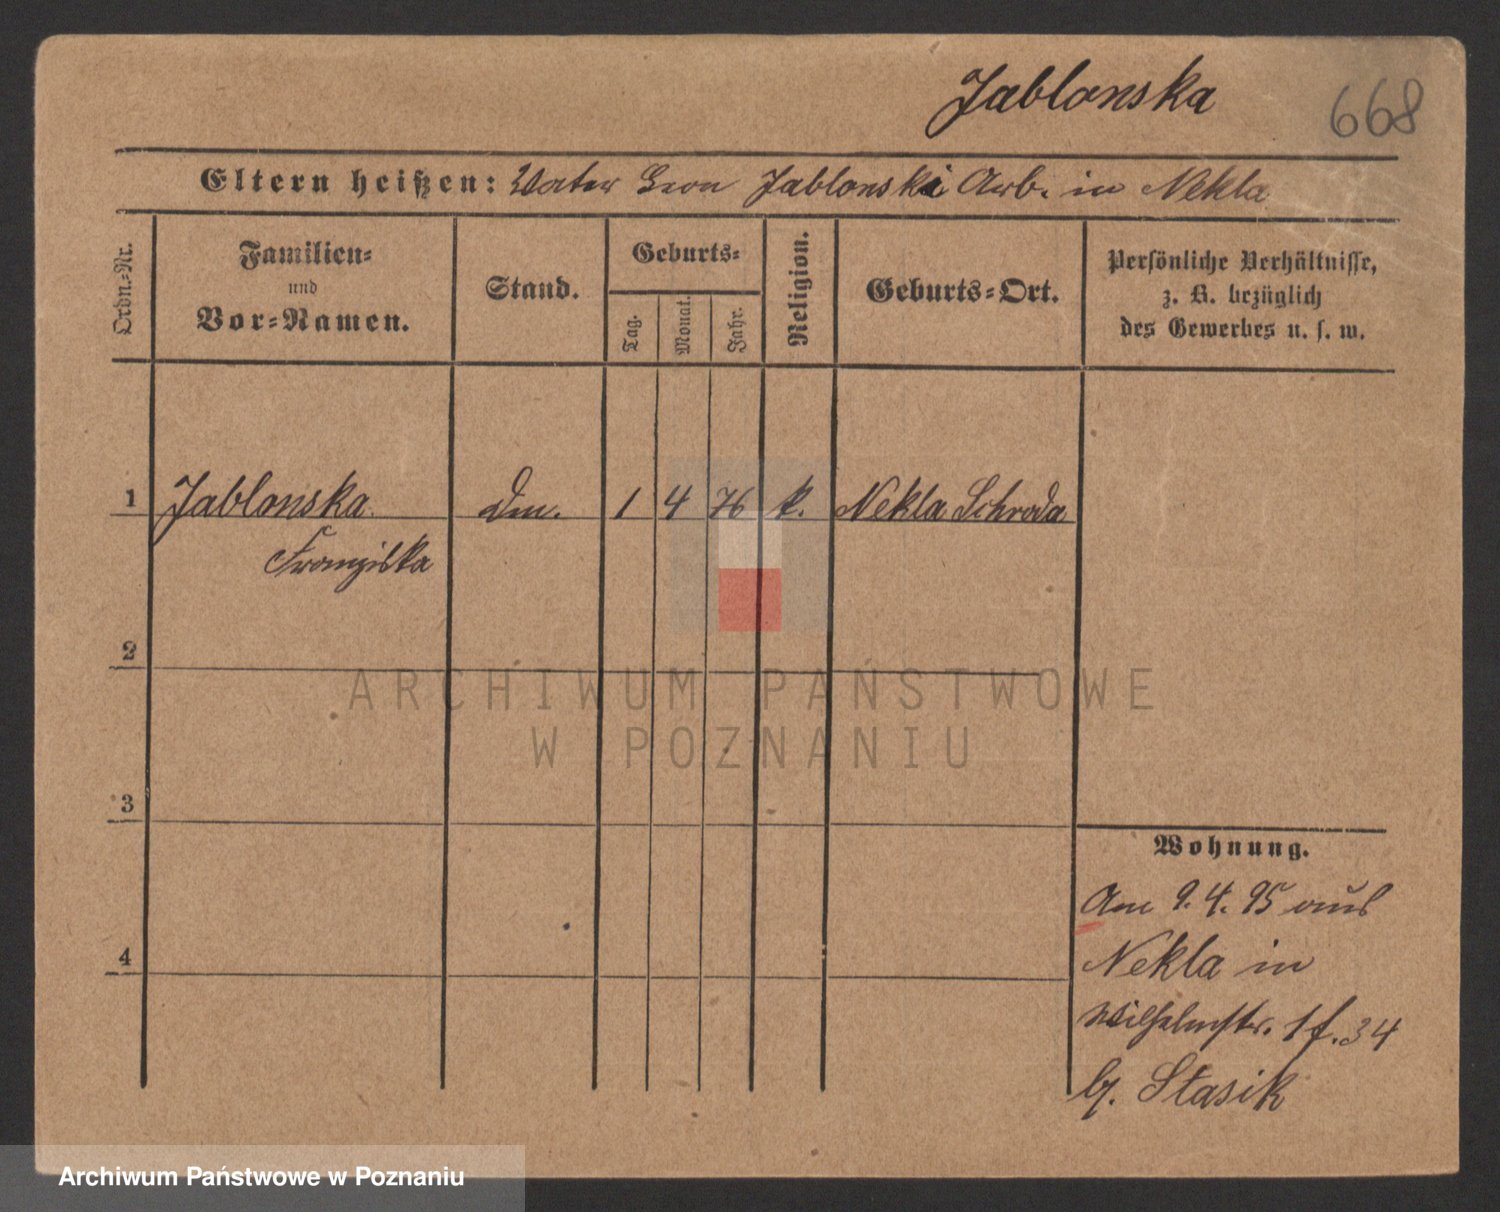 Jablonska
668
Eltern heißen: Vater Leon Jablonski Arb. in Nekla
Ordn.-Nr.
Familien-
und
Vor-Namen.
Stand.
Geburts-
Tag.
Monat.
Jahr.
Religion.
Geburts-Ort.
Persönliche Verhältnisse,
z. B. bezüglich
des Gewerbes u. s. w.
1 Jablonska Dm. 1 4 76 k. Nekla Schroda
Franziska
2
3
4
Wohnung.
Am 9. 4. 95 aus
Nekla in
Wilhelmstr. 1 f. 34
b. Stasik
ARCHIWUM PAŃSTWOWE
W POZNANIU
Archiwum Państwowe w Poznaniu